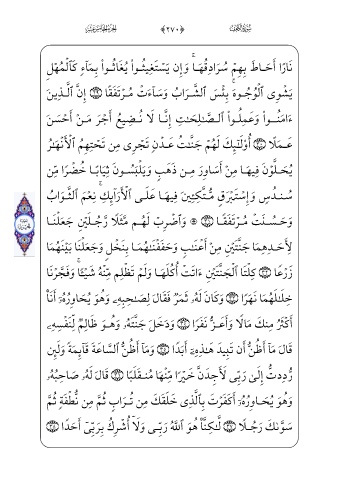 سورة الكهف
﴿٢٧٠﴾
الجزء الخامس عشر
نَارًا أَحَاطَ بِهِمْ سُرَادِقُهَا ۚ وَإِن يَسْتَغِيثُوا۟ يُغَاثُوا۟ بِمَآءٍ كَٱلْمُهْلِ
يَشْوِى ٱلْوُجُوهَ ۚ بِئْسَ ٱلشَّرَابُ وَسَآءَتْ مُرْتَفَقًا إِنَّ ٱلَّذِينَ
ءَامَنُوا۟ وَعَمِلُوا۟ ٱلصَّٰلِحَٰتِ إِنَّا لَا نُضِيعُ أَجْرَ مَنْ أَحْسَنَ
عَمَلًا أُو۟لَٰٓئِكَ لَهُمْ جَنَّٰتُ عَدْنٍ تَجْرِى مِن تَحْتِهِمُ ٱلْأَنْهَٰرُ
يُحَلَّوْنَ فِيهَا مِنْ أَسَاوِرَ مِن ذَهَبٍ وَيَلْبَسُونَ ثِيَابًا خُضْرًا مِّن
سُندُسٍ وَإِسْتَبْرَقٍ مُّتَّكِـِٔينَ فِيهَا عَلَى ٱلْأَرَآئِكِ ۚ نِعْمَ ٱلثَّوَابُ
وَحَسُنَتْ مُرْتَفَقًا ۞ وَٱضْرِبْ لَهُم مَّثَلًا رَّجُلَيْنِ جَعَلْنَا
لِأَحَدِهِمَا جَنَّتَيْنِ مِنْ أَعْنَٰبٍ وَحَفَفْنَٰهُمَا بِنَخْلٍ وَجَعَلْنَا بَيْنَهُمَا
زَرْعًا كِلْتَا ٱلْجَنَّتَيْنِ ءَاتَتْ أُكُلَهَا وَلَمْ تَظْلِم مِّنْهُ شَيْـًٔا ۚ وَفَجَّرْنَا
خِلَٰلَهُمَا نَهَرًا وَكَانَ لَهُۥ ثَمَرٌ فَقَالَ لِصَٰحِبِهِۦ وَهُوَ يُحَاوِرُهُۥٓ أَنَا۠
أَكْثَرُ مِنكَ مَالًا وَأَعَزُّ نَفَرًا وَدَخَلَ جَنَّتَهُۥ وَهُوَ ظَالِمٌ لِّنَفْسِهِۦ
قَالَ مَآ أَظُنُّ أَن تَبِيدَ هَٰذِهِۦٓ أَبَدًا وَمَآ أَظُنُّ ٱلسَّاعَةَ قَآئِمَةً وَلَئِن
رُّدِدتُّ إِلَىٰ رَبِّى لَأَجِدَنَّ خَيْرًا مِّنْهَا مُنقَلَبًا قَالَ لَهُۥ صَاحِبُهُۥ
وَهُوَ يُحَاوِرُهُۥٓ أَكَفَرْتَ بِٱلَّذِى خَلَقَكَ مِن تُرَابٍ ثُمَّ مِن نُّطْفَةٍ ثُمَّ
سَوَّىٰكَ رَجُلًا لَّٰكِنَّا۠ هُوَ ٱللَّهُ رَبِّى وَلَآ أُشْرِكُ بِرَبِّىٓ أَحَدًا